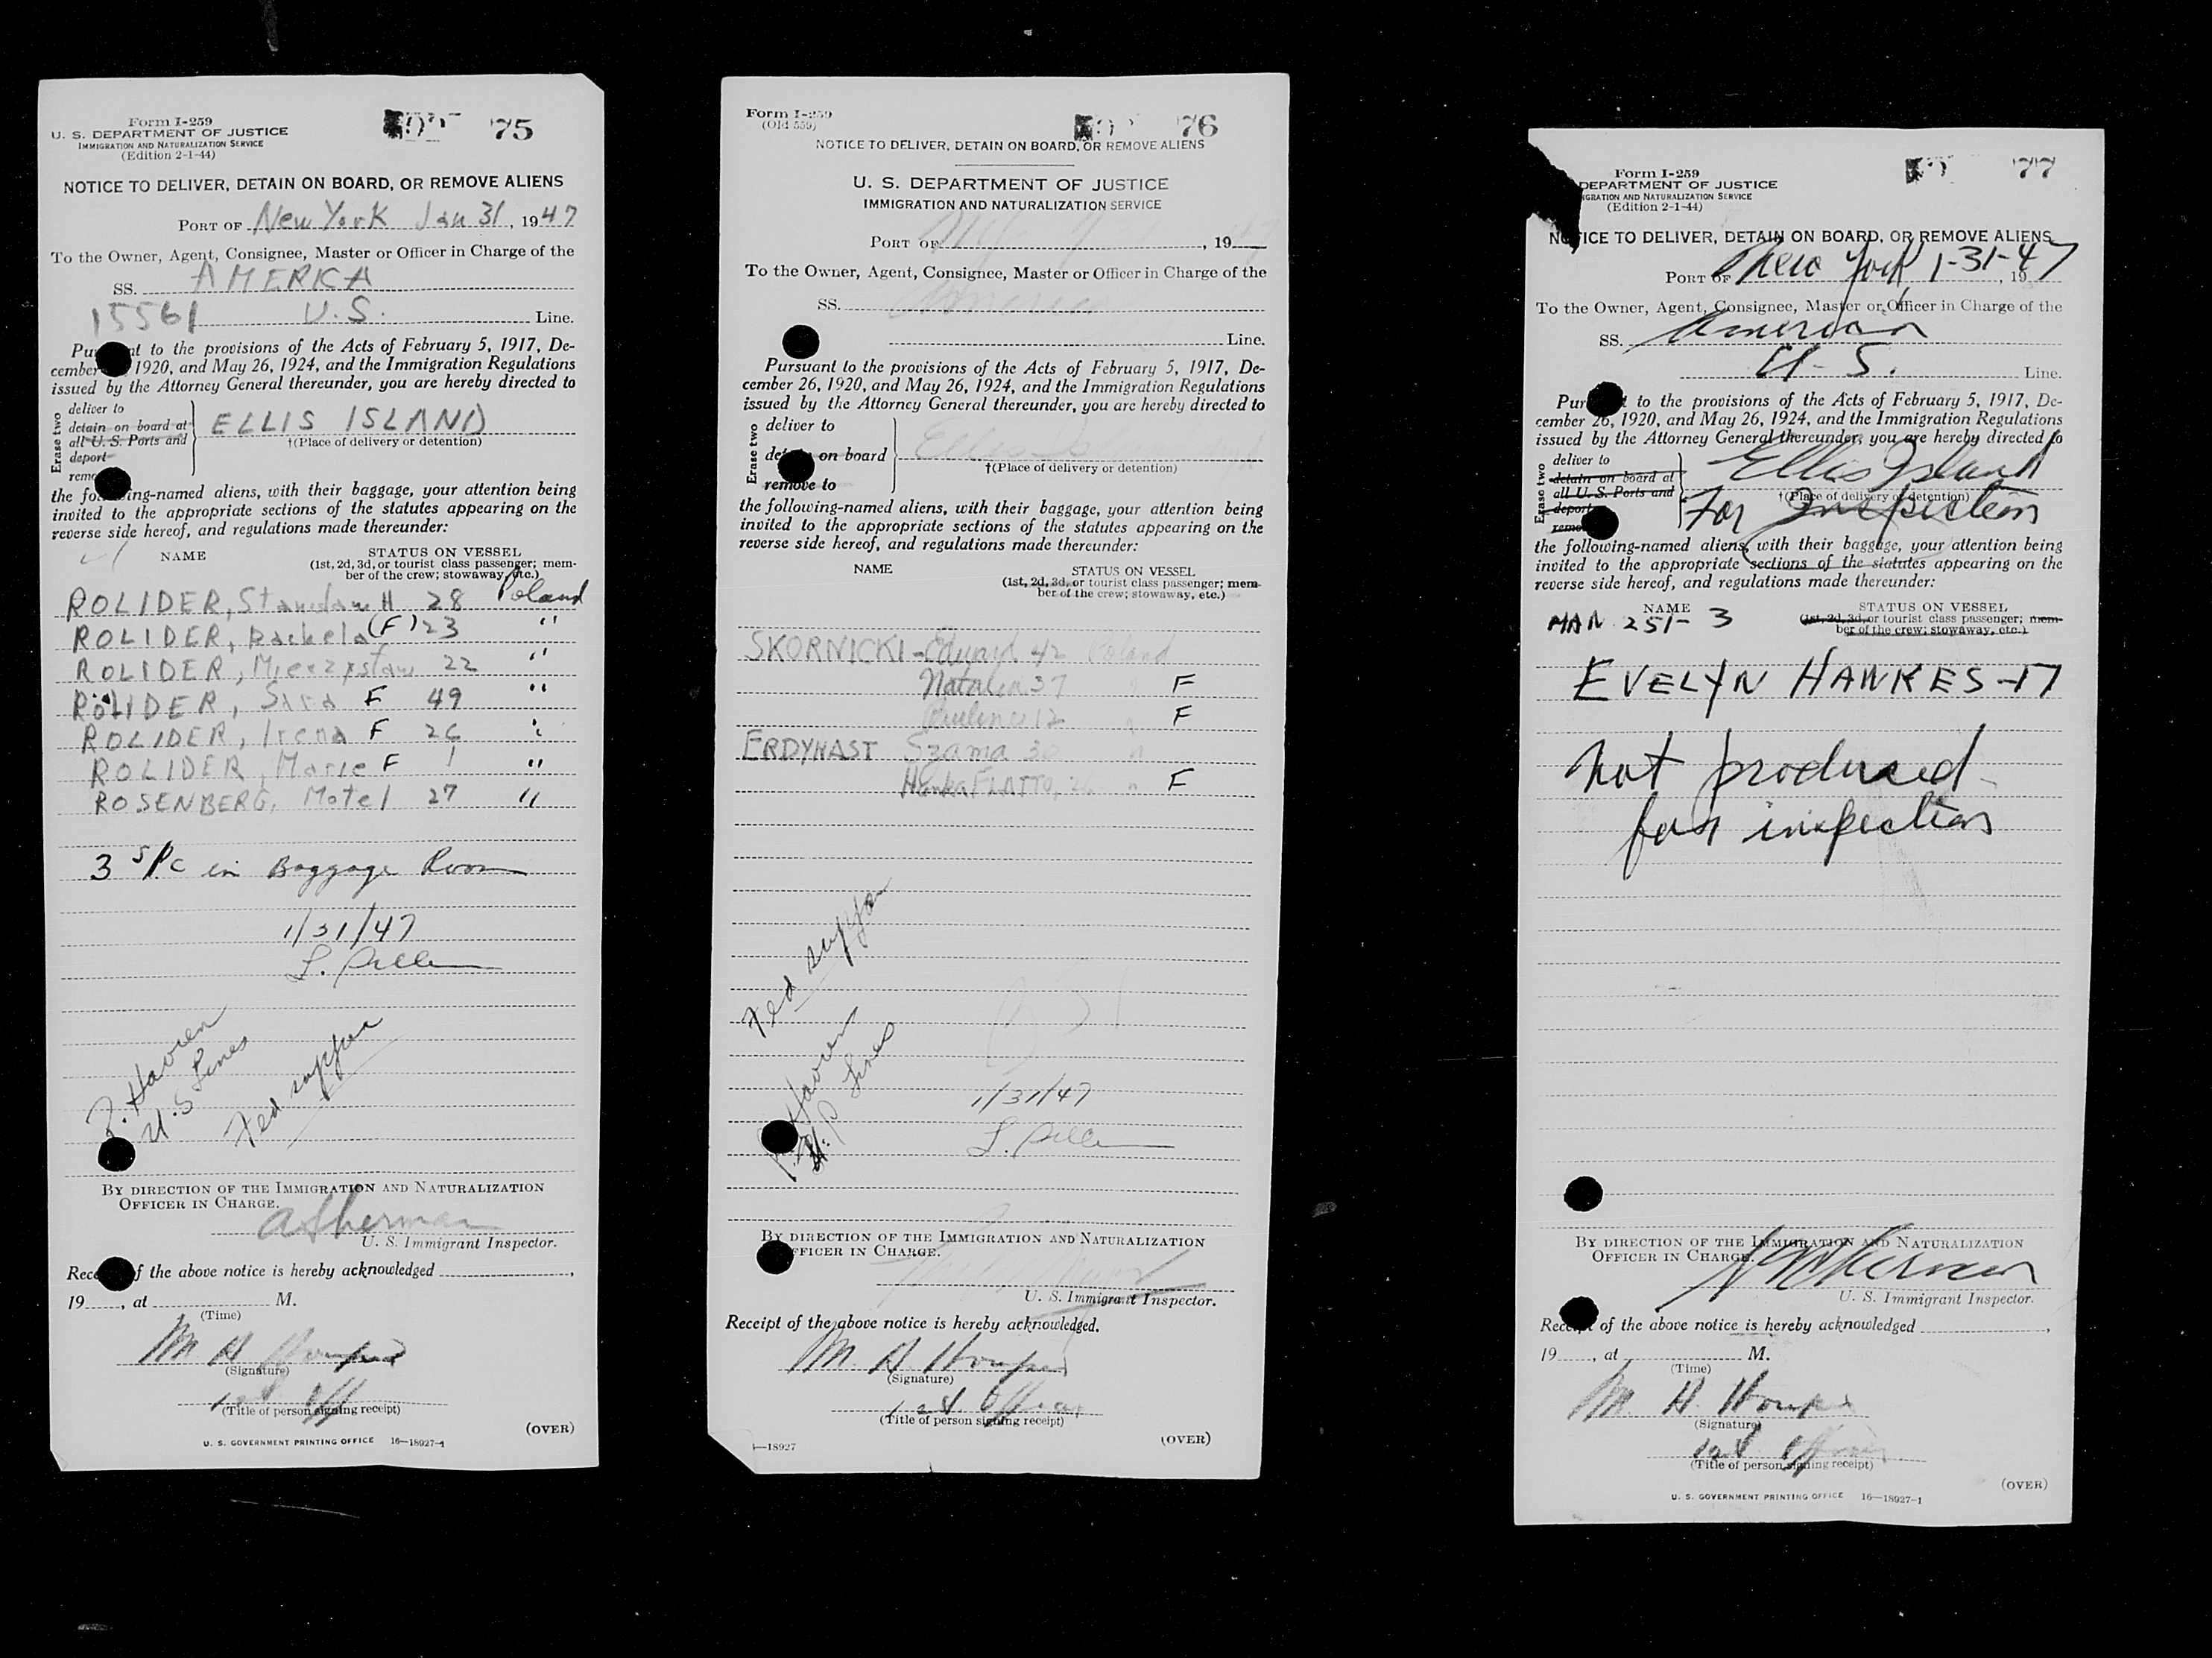 Form I-259
U. S. DEPARTMENT OF JUSTICE
IMMIGRATION AND NATURALIZATION SERVICE
(Edition 2-1-44)
75
NOTICE TO DELIVER, DETAIN ON BOARD, OR REMOVE ALIENS
PORT OF New York Jan 31, 1947
To the Owner, Agent, Consignee, Master or Officer in Charge of the
SS. AMERICA
15561 U.S. Line.
to the provisions of the Acts of February 5, 1917, De-
cember 1920, and May 26, 1924, and the Immigration Regulations
issued by the Attorney General thereunder, you are hereby directed to
Erase two
deliver to
detain on board at
all U. S. Ports and
deport
ELLIS ISLAND
†(Place of delivery or detention)
the following-named aliens, with their baggage, your attention being
invited to the appropriate sections of the statutes appearing on the
reverse side hereof, and regulations made thereunder:
NAME STATUS ON VESSEL
(1st, 2d, 3d, or tourist class passenger; mem-
ber of the crew; stowaway, etc.)
ROLIDER, 28 Poland
ROLIDER, (F) 23 "
ROLIDER, 22 "
ROLIDER, Sara F 49 "
ROLIDER, Irena F 26 "
ROLIDER, Marie F 1 "
ROSENBERG, Motel 27 "
3 in Baggage Room
1/31/47
Haven
U.S Lines
Fed supper
BY DIRECTION OF THE IMMIGRATION AND NATURALIZATION
OFFICER IN CHARGE.
A Sherman
U. S. Immigrant Inspector.
of the above notice is hereby acknowledged
19 , at M.
(Time)
M H
(Signature)
1st Off
(Title of person signing receipt)
(OVER)
U. S. GOVERNMENT PRINTING OFFICE 16—18927-1
Form I-259
(Old 559)
76
NOTICE TO DELIVER, DETAIN ON BOARD, OR REMOVE ALIENS
U. S. DEPARTMENT OF JUSTICE
IMMIGRATION AND NATURALIZATION SERVICE
PORT OF , 19
To the Owner, Agent, Consignee, Master or Officer in Charge of the
SS. America
Line.
Pursuant to the provisions of the Acts of February 5, 1917, De-
cember 26, 1920, and May 26, 1924, and the Immigration Regulations
issued by the Attorney General thereunder, you are hereby directed to
Erase two
deliver to
on board
remove to
Ellis
†(Place of delivery or detention)
the following-named aliens, with their baggage, your attention being
invited to the appropriate sections of the statutes appearing on the
reverse side hereof, and regulations made thereunder:
NAME STATUS ON VESSEL
(1st, 2d, 3d, or tourist class passenger; mem-
ber of the crew; stowaway, etc.)
SKORNICKI - Edward 42 Poland
Natalia 37 F
12 F
ERDYNAST Szama 30
Hanka FLATTO, 26 F
Fed supper
Haven
Lines
1/31/47
BY DIRECTION OF THE IMMIGRATION AND NATURALIZATION
OFFICER IN CHARGE.
U. S. Immigrant Inspector.
Receipt of the above notice is hereby acknowledged.
M. H.
(Signature)
1st Officer
(Title of person signing receipt)
18927 (OVER)
Form I-259
DEPARTMENT OF JUSTICE
NATURALIZATION SERVICE
(Edition 2-1-44)
77
NOTICE TO DELIVER, DETAIN ON BOARD, OR REMOVE ALIENS
PORT OF New York 1-31-47, 19
To the Owner, Agent, Consignee, Master or Officer in Charge of the
SS. America
U-S. Line.
to the provisions of the Acts of February 5, 1917, De-
cember 26, 1920, and May 26, 1924, and the Immigration Regulations
issued by the Attorney General thereunder, you are hereby directed to
Erase two
deliver to
detain on board at
all U. S. Ports and
deport
Ellis Island
†(Place of delivery or detention)
For Inspection
the following-named aliens, with their baggage, your attention being
invited to the appropriate sections of the statutes appearing on the
reverse side hereof, and regulations made thereunder:
NAME STATUS ON VESSEL
MAN 251-3
(1st, 2d, 3d, or tourist class passenger; mem-
ber of the crew; stowaway, etc.)
EVELYN HAWKES - 17
not produced
for inspection
BY DIRECTION OF THE IMMIGRATION AND NATURALIZATION
OFFICER IN CHARGE.
U. S. Immigrant Inspector.
of the above notice is hereby acknowledged
19 , at M.
(Time)
M. H.
(Signature)
1st Officer
(Title of person signing receipt)
(OVER)
U. S. GOVERNMENT PRINTING OFFICE 16—18927-1